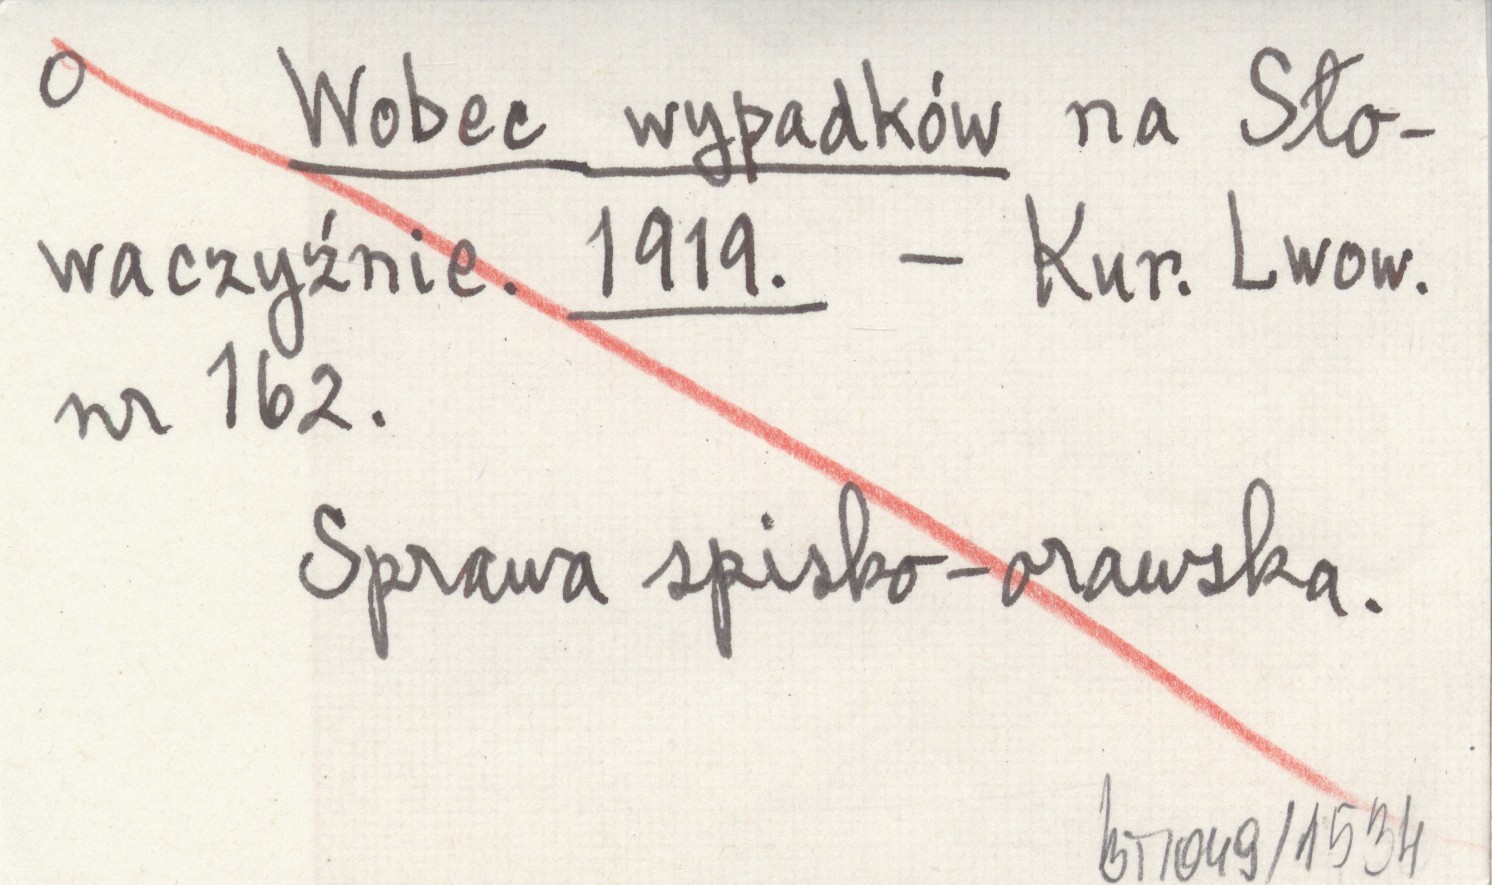 o Wobec wypadków na Sło-
waczyźnie. 1919. – Kur. Lwow.
nr 162.
Sprawa spisko-orawska.
BT1049/1534